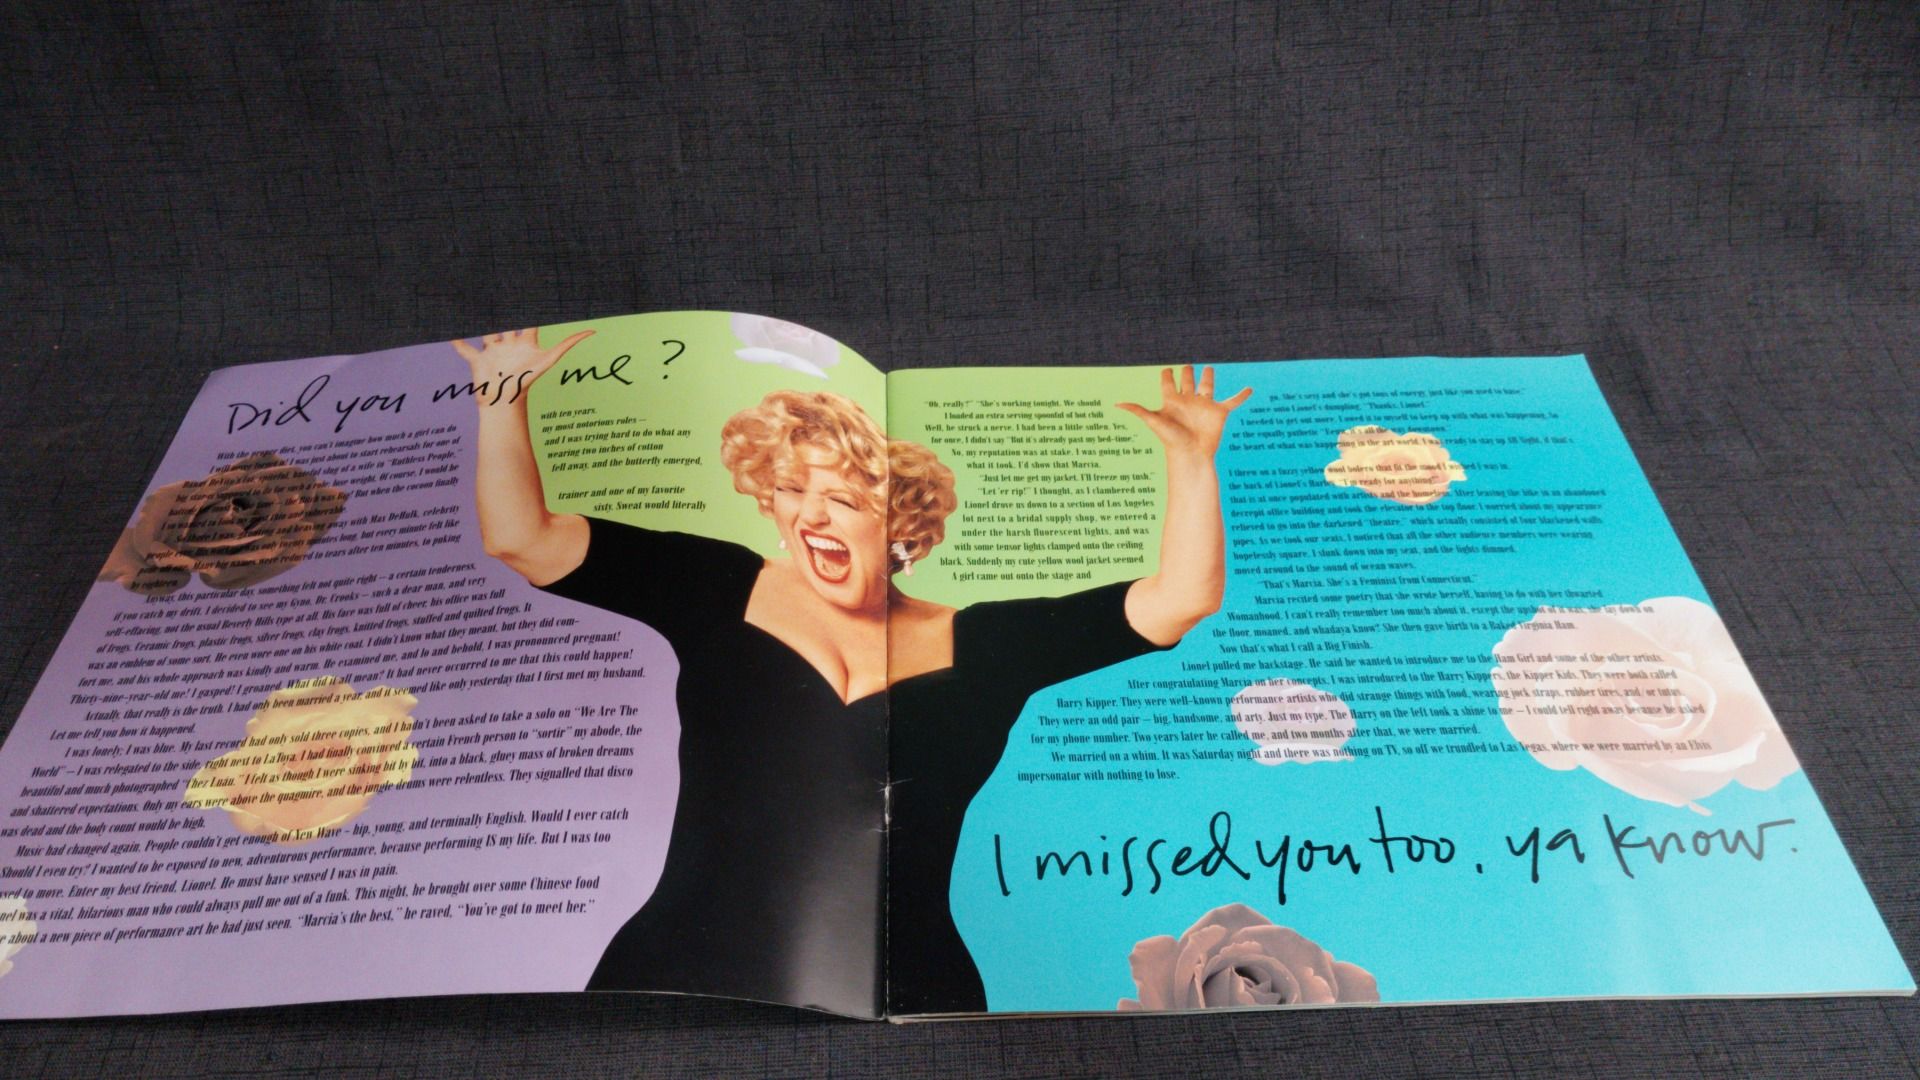 Did you miss me?
With the proper diet, you can't imagine how much a girl can do with ten years.
I will never forget it! I was just about to start rehearsals for one of my most notorious roles —
Danny DeVito's fat, spiteful, hateful slug of a wife in "Ruthless People," and I was trying hard to do what any
big star is supposed to do for such a role: lose weight. Of course, I would be wearing two inches of cotton
batting for most of the time — the Bitch was Big! But when the cocoon finally fell away, and the butterfly emerged,
I so wanted to look my most thin and vulnerable.
So there I was, grunting and heaving away with Max DeHulk, celebrity trainer and one of my favorite
people ever. His workout was only twenty minutes long, but every minute felt like sixty. Sweat would literally
pour off me. Many big names were reduced to tears after ten minutes, to puking
by eighteen.
Anyway, this particular day, something felt not quite right — a certain tenderness,
if you catch my drift. I decided to see my Gyno, Dr. Crooks — such a dear man, and very
self-effacing, not the usual Beverly Hills type at all. His face was full of cheer, his office was full
of frogs. Ceramic frogs, plastic frogs, silver frogs, clay frogs, knitted frogs, stuffed and quilted frogs. It
was an emblem of some sort. He even wore one on his white coat. I didn't know what they meant, but they did com-
fort me, and his whole approach was kindly and warm. He examined me, and lo and behold, I was pronounced pregnant!
Thirty-nine-year-old me! I gasped! I groaned. What did it all mean? It had never occurred to me that this could happen!
Actually, that really is the truth. I had only been married a year, and it seemed like only yesterday that I first met my husband.
Let me tell you how it happened.
I was lonely; I was blue. My last record had only sold three copies, and I hadn't been asked to take a solo on "We Are The
World" — I was relegated to the side, right next to LaToya. I had finally convinced a certain French person to "sortir" my abode, the
beautiful and much photographed "Chez Luán." I felt as though I were sinking bit by bit, into a black, gluey mass of broken dreams
and shattered expectations. Only my ears were above the quagmire, and the jungle drums were relentless. They signalled that disco
was dead and the body count would be high.
Music had changed again. People couldn't get enough of New Wave – hip, young, and terminally English. Would I ever catch
Should I even try? I wanted to be exposed to new, adventurous performance, because performing IS my life. But I was too
to move. Enter my best friend, Lionel. He must have sensed I was in pain.
was a vital, hilarious man who could always pull me out of a funk. This night, he brought over some Chinese food
about a new piece of performance art he had just seen. "Marcia's the best," he raved, "You've got to meet her."
"Oh, really?" "She's working tonight. We should go. She's sexy and she's got tons of energy, just like you used to have."
I loaded an extra serving spoonful of hot chili sauce onto Lionel's dumpling. "Thanks, Lionel."
Well, he struck a nerve. I had been a little sullen. Yes, I needed to get out more. I owed it to myself to keep up with what was happening. So
for once, I didn't say "But it's already past my bed-time." or the equally pathetic it's all the way downtown."
No, my reputation was at stake. I was going to be at the heart of what was happening in the art world. I was ready to stay up all night, if that's
what it took. I'd show that Marcia.
"Just let me get my jacket. I'll freeze my tush." I threw on a fuzzy yellow wool bolero that fit the mood I wished I was in.
"Let 'er rip!" I thought, as I clambered onto the back of Lionel's "I'm ready for anything!"
Lionel drove us down to a section of Los Angeles that is at once populated with artists and the homeless. After leaving the bike in an abandoned
lot next to a bridal supply shop, we entered a decrepit office building and took the elevator to the top floor. I worried about my appearance
under the harsh fluorescent lights, and was relieved to go into the darkened "theatre," which actually consisted of four blackened walls
with some tensor lights clamped onto the ceiling pipes. As we took our seats, I noticed that all the other audience members were wearing
black. Suddenly my cute yellow wool jacket seemed hopelessly square. I slunk down into my seat, and the lights dimmed.
A girl came out onto the stage and moved around to the sound of ocean waves.
"That's Marcia. She's a Feminist from Connecticut."
Marcia recited some poetry that she wrote herself, having to do with her thwarted
Womanhood. I can't really remember too much about it, except the upshot of it was, she lay down on
the floor, moaned, and whadaya know? She then gave birth to a Baked Virginia Ham.
Now that's what I call a Big Finish.
Lionel pulled me backstage. He said he wanted to introduce me to the Ham Girl and some of the other artists.
After congratulating Marcia on her concepts, I was introduced to the Harry Kippers, the Kipper Kids. They were both called
Harry Kipper. They were well-known performance artists who did strange things with food, wearing jock straps, rubber tires, and/or tutus.
They were an odd pair — big, handsome, and arty. Just my type. The Harry on the left took a shine to me — I could tell right away because he asked
for my phone number. Two years later he called me, and two months after that, we were married.
We married on a whim. It was Saturday night and there was nothing on TV, so off we trundled to Las Vegas, where we were married by an Elvis
impersonator with nothing to lose.
I missed you too, ya know.